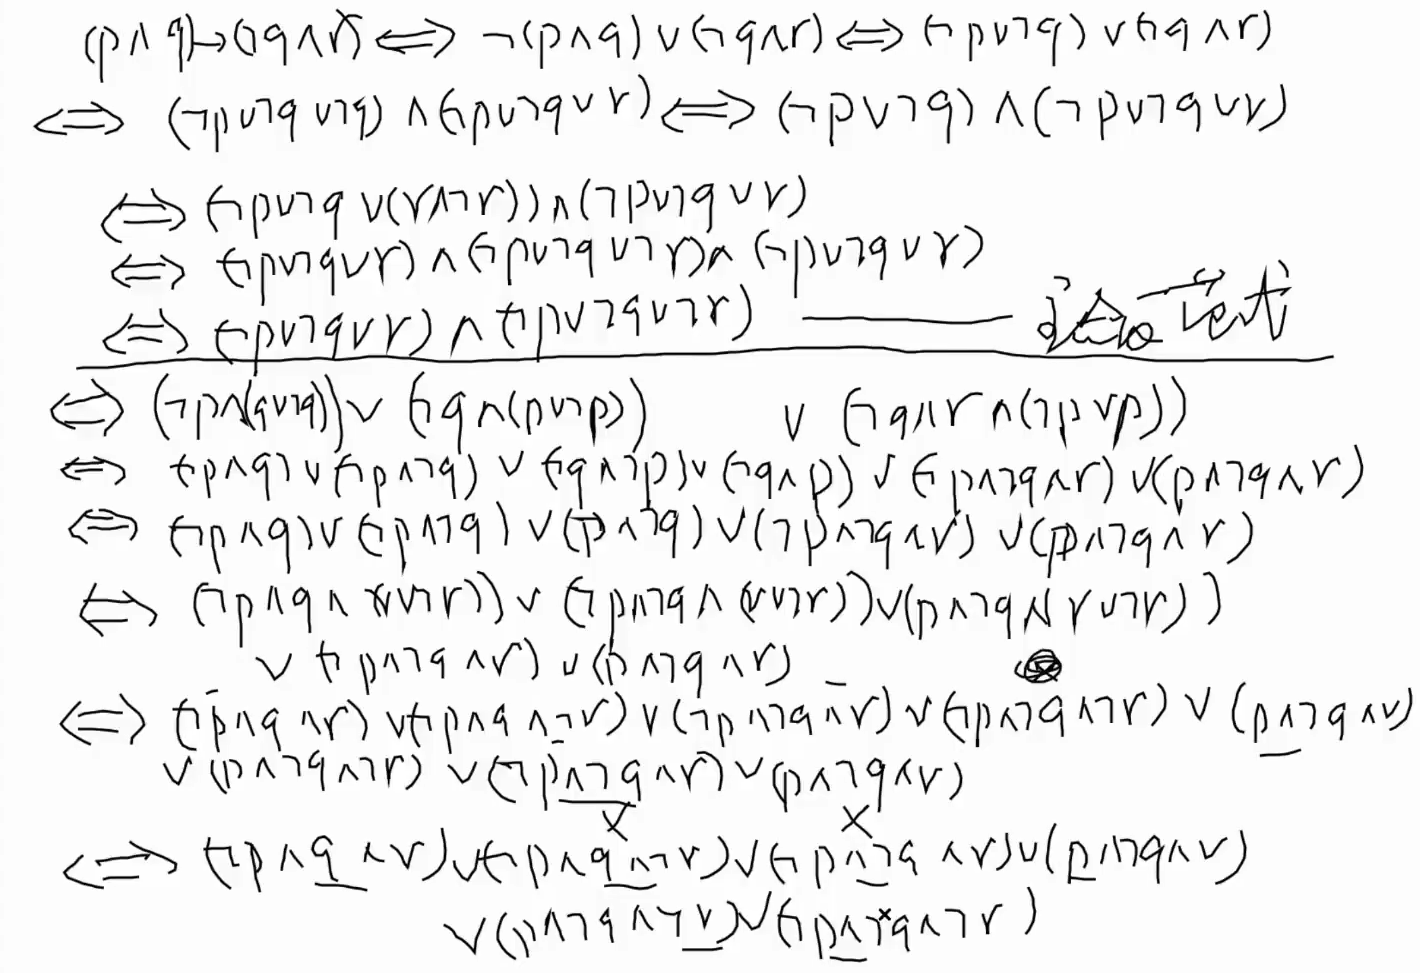 (p∧q)→(¬q∧r) ⇔ ¬(p∧q)∨(¬q∧r) ⇔ (¬p∨¬q)∨(¬q∧r)
⇔ (¬p∨¬q∨¬q)∧(¬p∨¬q∨r) ⇔ (¬p∨¬q)∧(¬p∨¬q∨r)
⇔ (¬p∨¬q∨(r∧¬r))∧(¬p∨¬q∨r)
⇔ (¬p∨¬q∨r)∧(¬p∨¬q∨¬r)∧(¬p∨¬q∨r)
⇔ (¬p∨¬q∨r)∧(¬p∨¬q∨¬r)
⇔ (¬p∧(q∨¬q))∨(¬q∧(p∨¬p)) ∨(¬q∧r∧(¬p∨p))
⇔ (¬p∧q)∨(¬p∧¬q)∨(¬q∧¬p)∨(¬q∧p)∨(¬p∧¬q∧r)∨(p∧¬q∧r)
⇔ (¬p∧q)∨(¬p∧¬q)∨(p∧¬q)∨(¬p∧¬q∧r)∨(p∧¬q∧r)
⇔ (¬p∧q∧(r∨¬r))∨(¬p∧¬q∧(r∨¬r))∨(p∧¬q∧r∨¬r))
∨(¬p∧¬q∧r)∨(p∧¬q∧r)
⇔ (¬p∧q∧r)∨(¬p∧q∧¬r)∨(¬p∧¬q∧r)∨(¬p∧¬q∧¬r)∨(p∧¬q∧r)
∨(p∧¬q∧¬r)∨(¬p∧¬q∧r)∨(p∧¬q∧r)
⇔ (¬p∧q∧r)∨(¬p∧q∧¬r)∨(¬p∧¬q∧r)∨(p∧¬q∧r)
∨(p∧¬q∧¬r)∨(¬p∧¬q∧¬r)